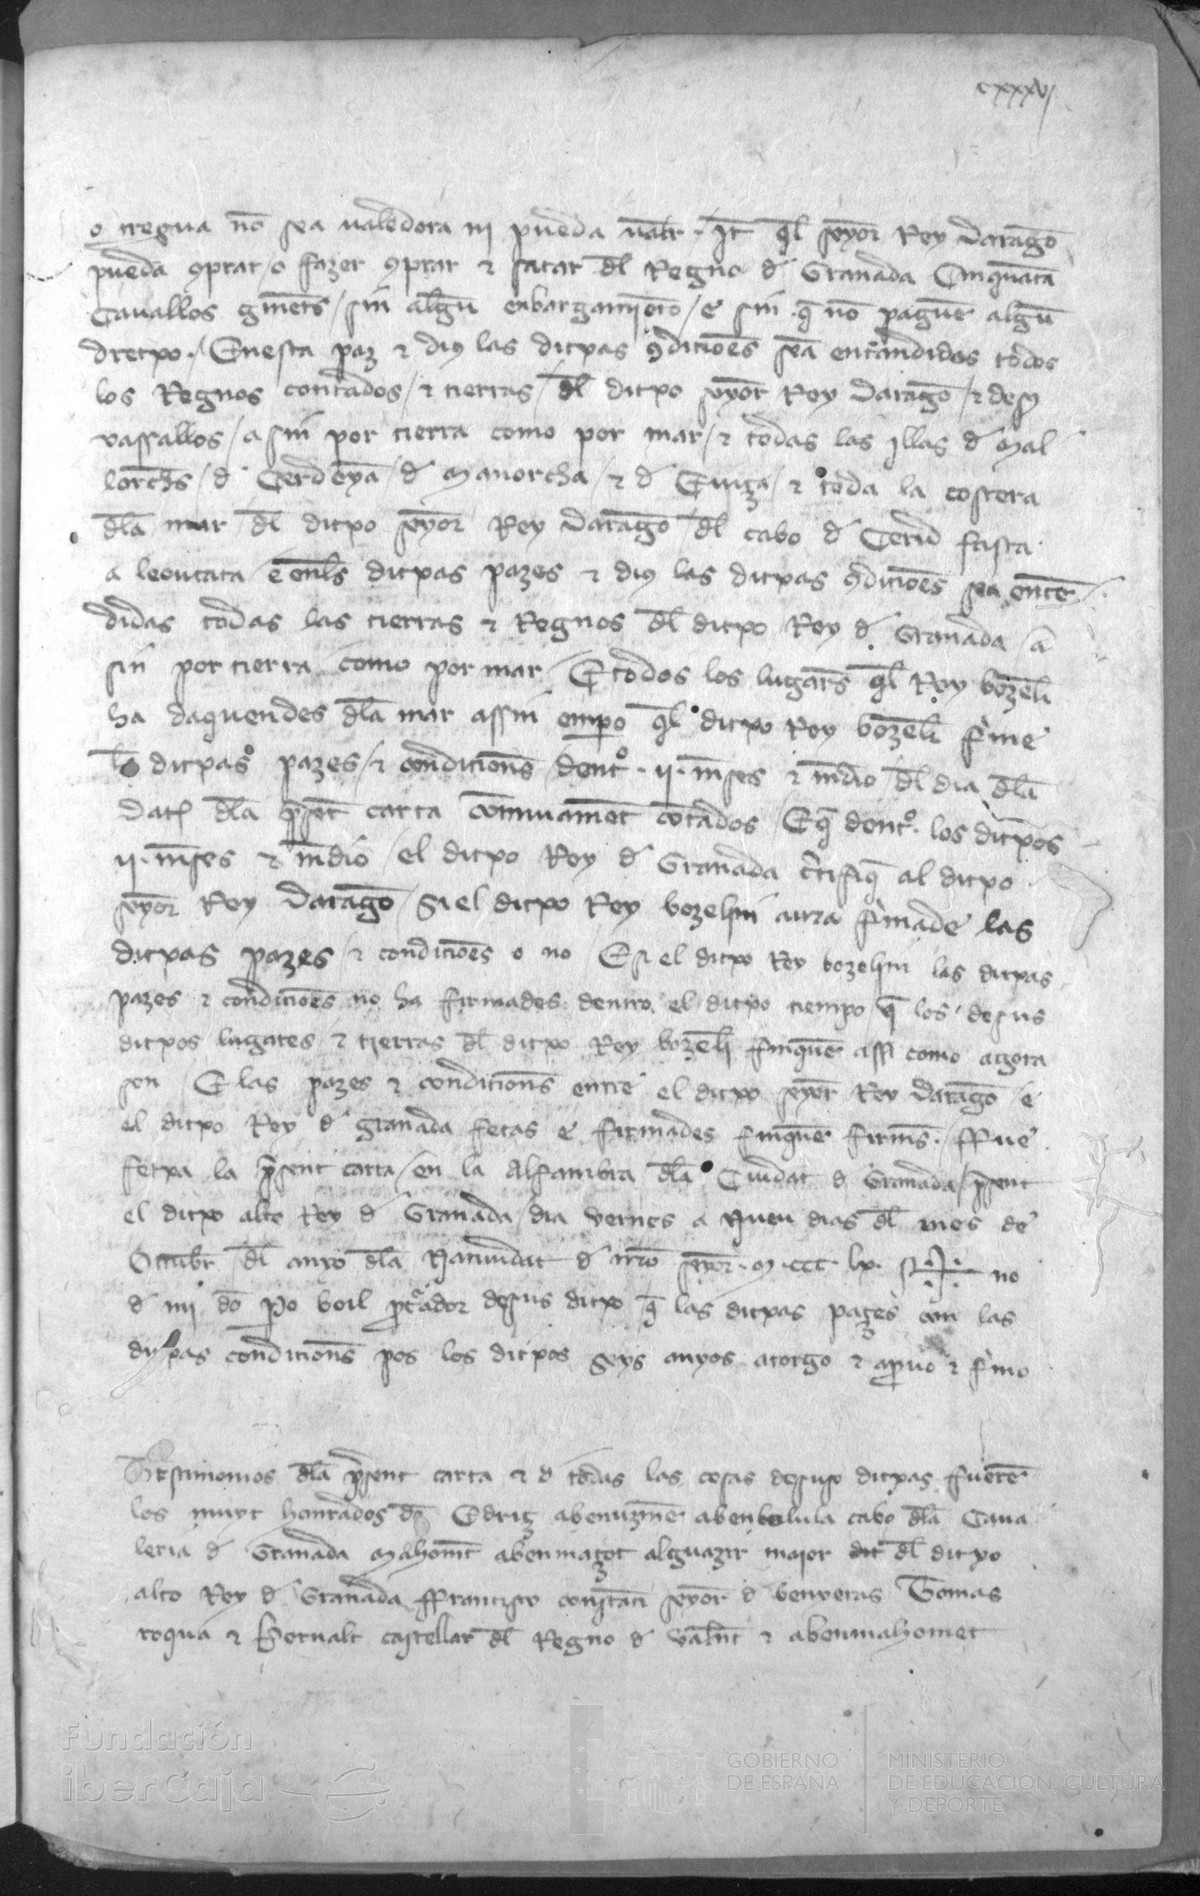 cxxxvj
o tregua nō sea ualedora ni pueda ualr̄ · Itē q̄l senyōr Rey Daragō
pueda ꝯprar / o fazer ꝯprar & sacar dl̄ Regno d' Granada Cinquāta
Cauallos ginets / sin algū enbargamiēto / e sin q̄ nō paguē algū
dretxo · / Enesta paz & dius las ditxas ꝯdicioēs seā entēndidos todos
los Regnos contados / & tierras / dl̄ ditxo senyōr Rey Daragō / & de sus
vassallos / assin por tierra como por mar / & todas las illas d' Mal
lorchēs / d' Cerdenyā / d' Manorcha / & d' Euiza / & toda la costera
dl̄a mar dl̄ ditxo senyōr Rey Daragō dl̄ cabo d' Ceruer fasta
a leoucata e enl̄s ditxas pazes & dius las ditxas ꝯdicioēs sea entēn
didas todas las tierras & Regnos dl̄ ditxo Rey d' Granada / a
sin por tierra como por mar / E todos los lugarēs q̄l Rey bozēlī
ha daquendes dl̄a mar assin empo q̄l ditxo Rey bozēlī firme
las ditxas pazes / & condicionēs dentº · ij · mēses & mēdio dl̄ dia dl̄a
Dat̄ dl̄a p̄sēt carta continuamēt cōtados / E q̄ dentº · los ditxos
ij · mēses & mēdio / el ditxo Rey d' Granada c̄tifiq̄ al ditxo
senyōr Rey Daragō / Si el ditxo Rey bozelin aura firmade las
ditxas pazes / & condicioēs o no E si el ditxo Rey bozelin las ditxas
pazes & condicioēs no ha firmades dentro el ditxo tiempo q̄ los desus
ditxos lugares & tierras dl̄ ditxo Rey bozēlī finquē assi como agora
son E las pazes & condicionēs entre el ditxo senyōr Rey Daragō e
el ditxo Rey d' granada fetas e firmades finquē firmēs · ffue
fetxa la p̄sent carta / en la Alfambra dl̄a Ciudat d' Granada / p̄sent
el ditxo alto Rey d' Granada / dia vernes a Nueu dias dl̄ mes de
Octubr̄ dl̄ anyo dl̄a Natiuidat d' nr̄o senyōr · M · ccc · lx · Sig+no
d' mi dō Po boil p̄curador desus ditxo q̄ las ditxas pazes con las
ditxas condicionēs pos los ditxos seys anyos atorgo & aprueuo & firmo
Testimonios dl̄a p̄sent carta & d' todas las cosas desuso ditxas fuerē
los muyt honrados dō Edriz abenuzmē abenbelula cabo dl̄a Caua
leria d' Granada Mahomēt abenmazot alguazir maior dl̄ ditxo
alto Rey d' Granada ffrancisco constāti senyōr d' benyeras Tomas
roqua & Bernalt castellar dl̄ Regno d' Valēnt & abenmahomet
Fundación
iberCaja
GOBIERNO
DE ESPAÑA
MINISTERIO
DE EDUCACIÓN, CULTURA
Y DEPORTE